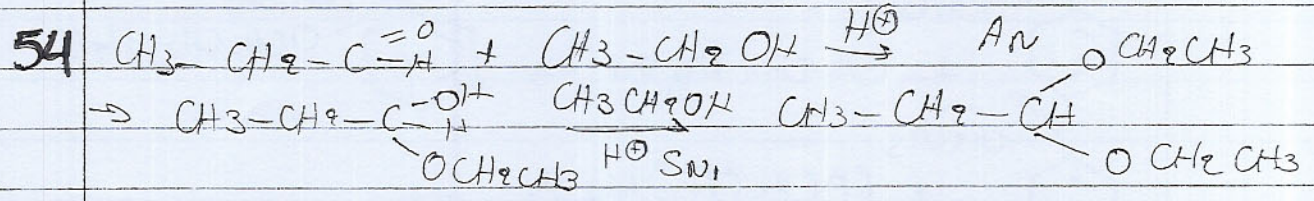 54 CH3 - CH2 - C =O - H + CH3 - CH2 OH H⊕ → AN
→ CH3 - CH2 - C - OH - H OCH2CH3 CH3CH2OH → H⊕ SN1 CH3 - CH2 - CH O CH2CH3 O CH2 CH3